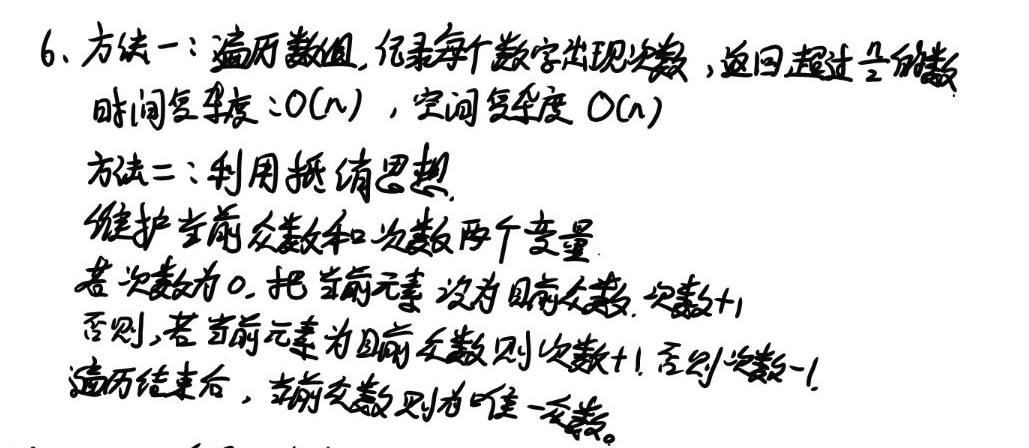 6、方法一：遍历数组，记录每个数字出现次数，返回超过n/2的数
时间复杂度：O(n)，空间复杂度 O(n)
方法二：利用抵消思想.
维护当前众数和次数两个变量.
若次数为0，把当前元素设为目前众数.次数+1
否则，若当前元素为目前众数则次数+1.否则次数-1.
遍历结束后，当前众数则为唯一众数。